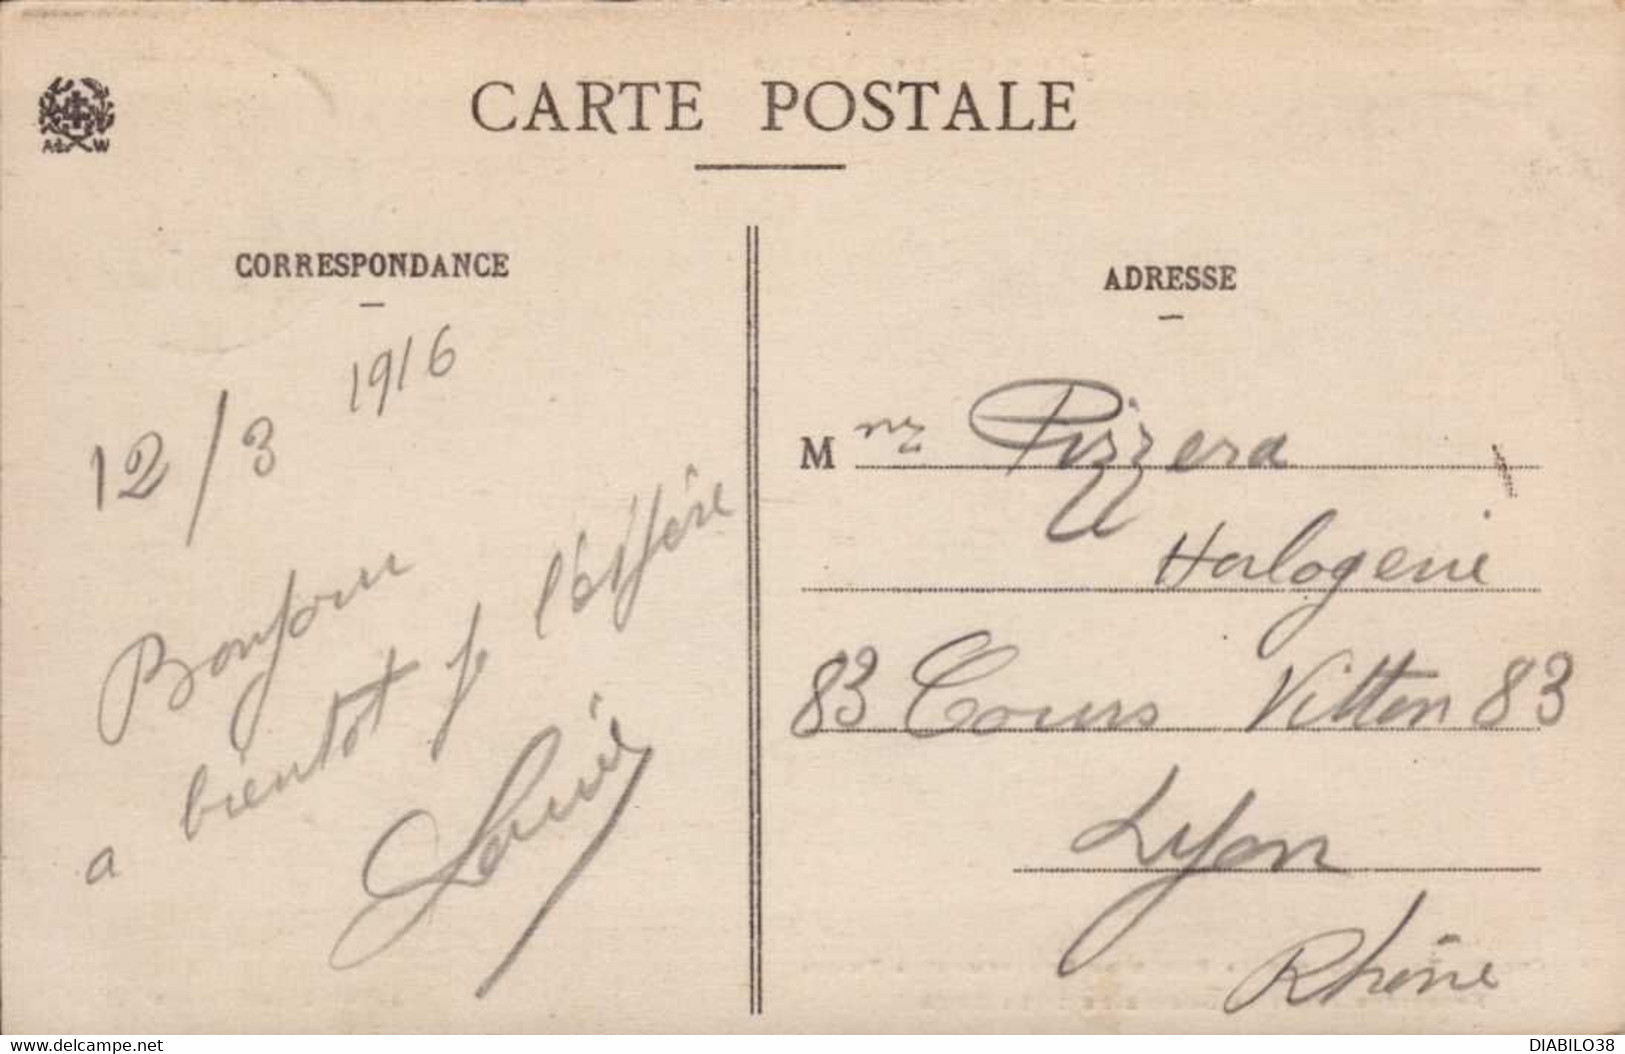 CARTE POSTALE
CORRESPONDANCE
12/3 1916
Bonjour
a bientot je l'espère
Louis
ADRESSE
M me Pizzera
Horlogerie
83 Cours Vitton 83
Lyon
Rhône
delcampe.net
DIABILO38